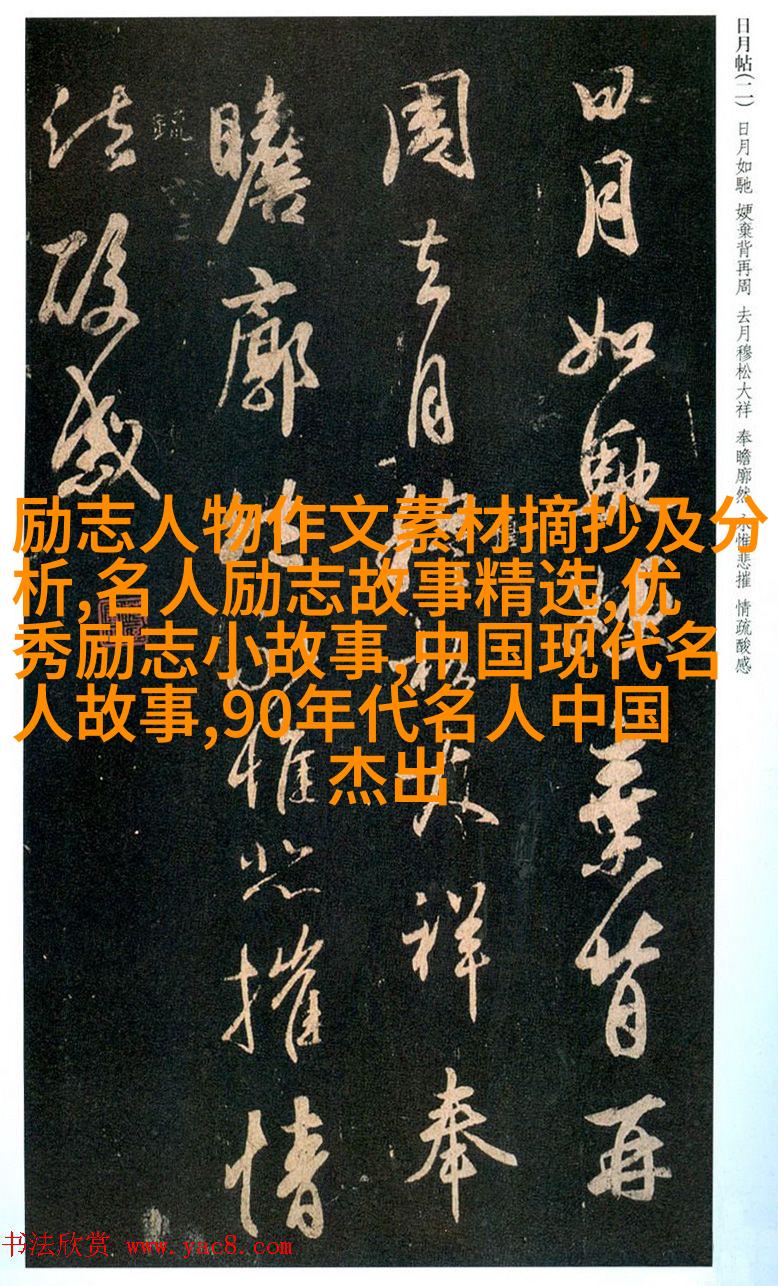 日月帖(二) 日月如馳 㛐棄背再周 去月穆松大祥 奉瞻廓然 永惟悲摧 情疏酸感
日月如馳㛐棄背再
周去月穆松大祥奉
瞻廓然永惟悲摧情
酸感
励志人物作文素材摘抄及分
析,名人励志故事精选,优
秀励志小故事,中国现代名
人故事,90年代名人中国
杰出
书法欣赏 www.yac8.com